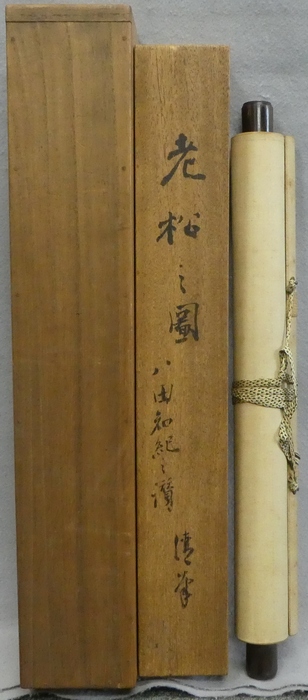 老松之圖
八田知紀之讃 清峯